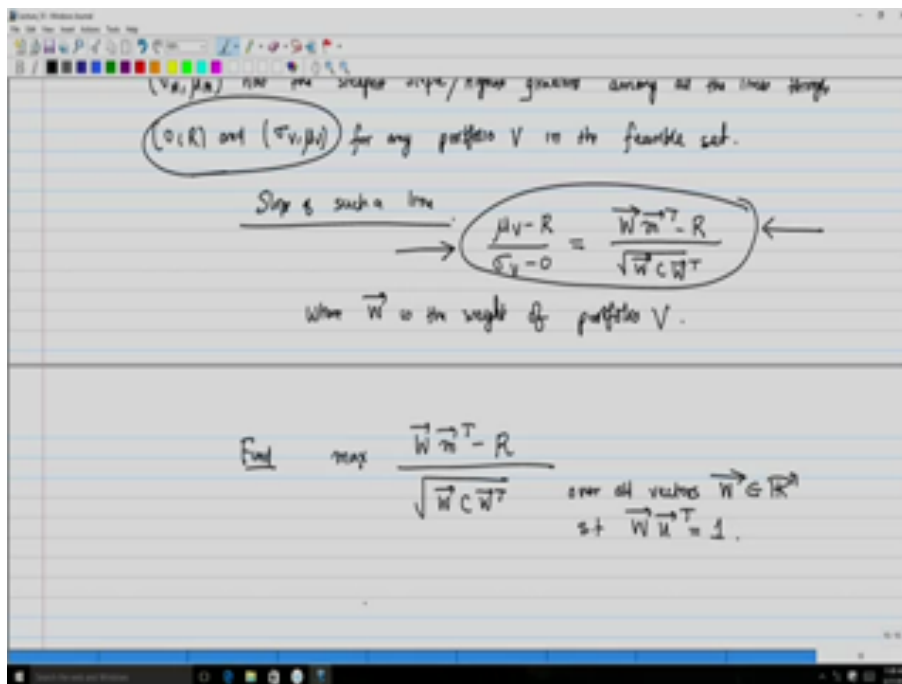 (σ_M, μ_M) has the steepest slope/highest gradient among all the lines through
(0, R) and (σ_V, μ_V) for any portfolio V in the feasible set.
Slope of such a line
(μ_V - R)/(σ_V - 0) = (W⃗ m⃗^T - R)/√(W⃗ C W⃗^T)
Where W⃗ is the weight of portfolio V.
Find max (W⃗ m⃗^T - R)/√(W⃗ C W⃗^T) over all vectors W⃗ ∈ ℝ^n
s.t W⃗ u⃗^T = 1.